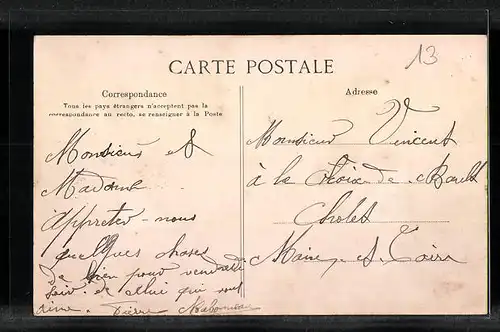 13
CARTE POSTALE
Correspondance
Tous les pays étrangers n'acceptent pas la
correspondance au recto, se renseigner à la Poste
Adresse
Monsieur &
Madame
appreter-nous
quelques choses
de bien pour vendredi
soir. de celui qui vous
aime. Pierre
Monsieur Vincent
à la Croix-de-
Cholet
Maine-et-Loire